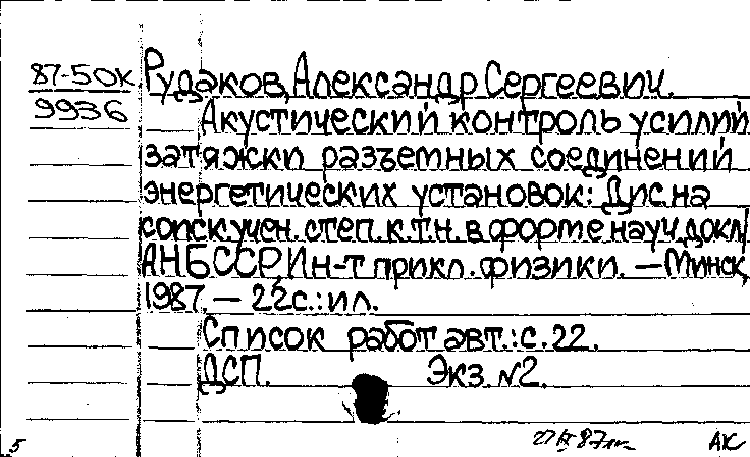 87-50к Рудаков, Александр Сергеевич.
9936 Акустический контроль усилий
затяжки разъемных соединений
энергетических установок: Дис. на
соиск. учен. степ. к.т.н. в форме науч. докл/
АН БССР, Ин-т прикл. физики. — Минск,
1987. — 22 с.: ил.
Список работ авт.: с. 22.
ДСП. Экз. №2.
5 АК